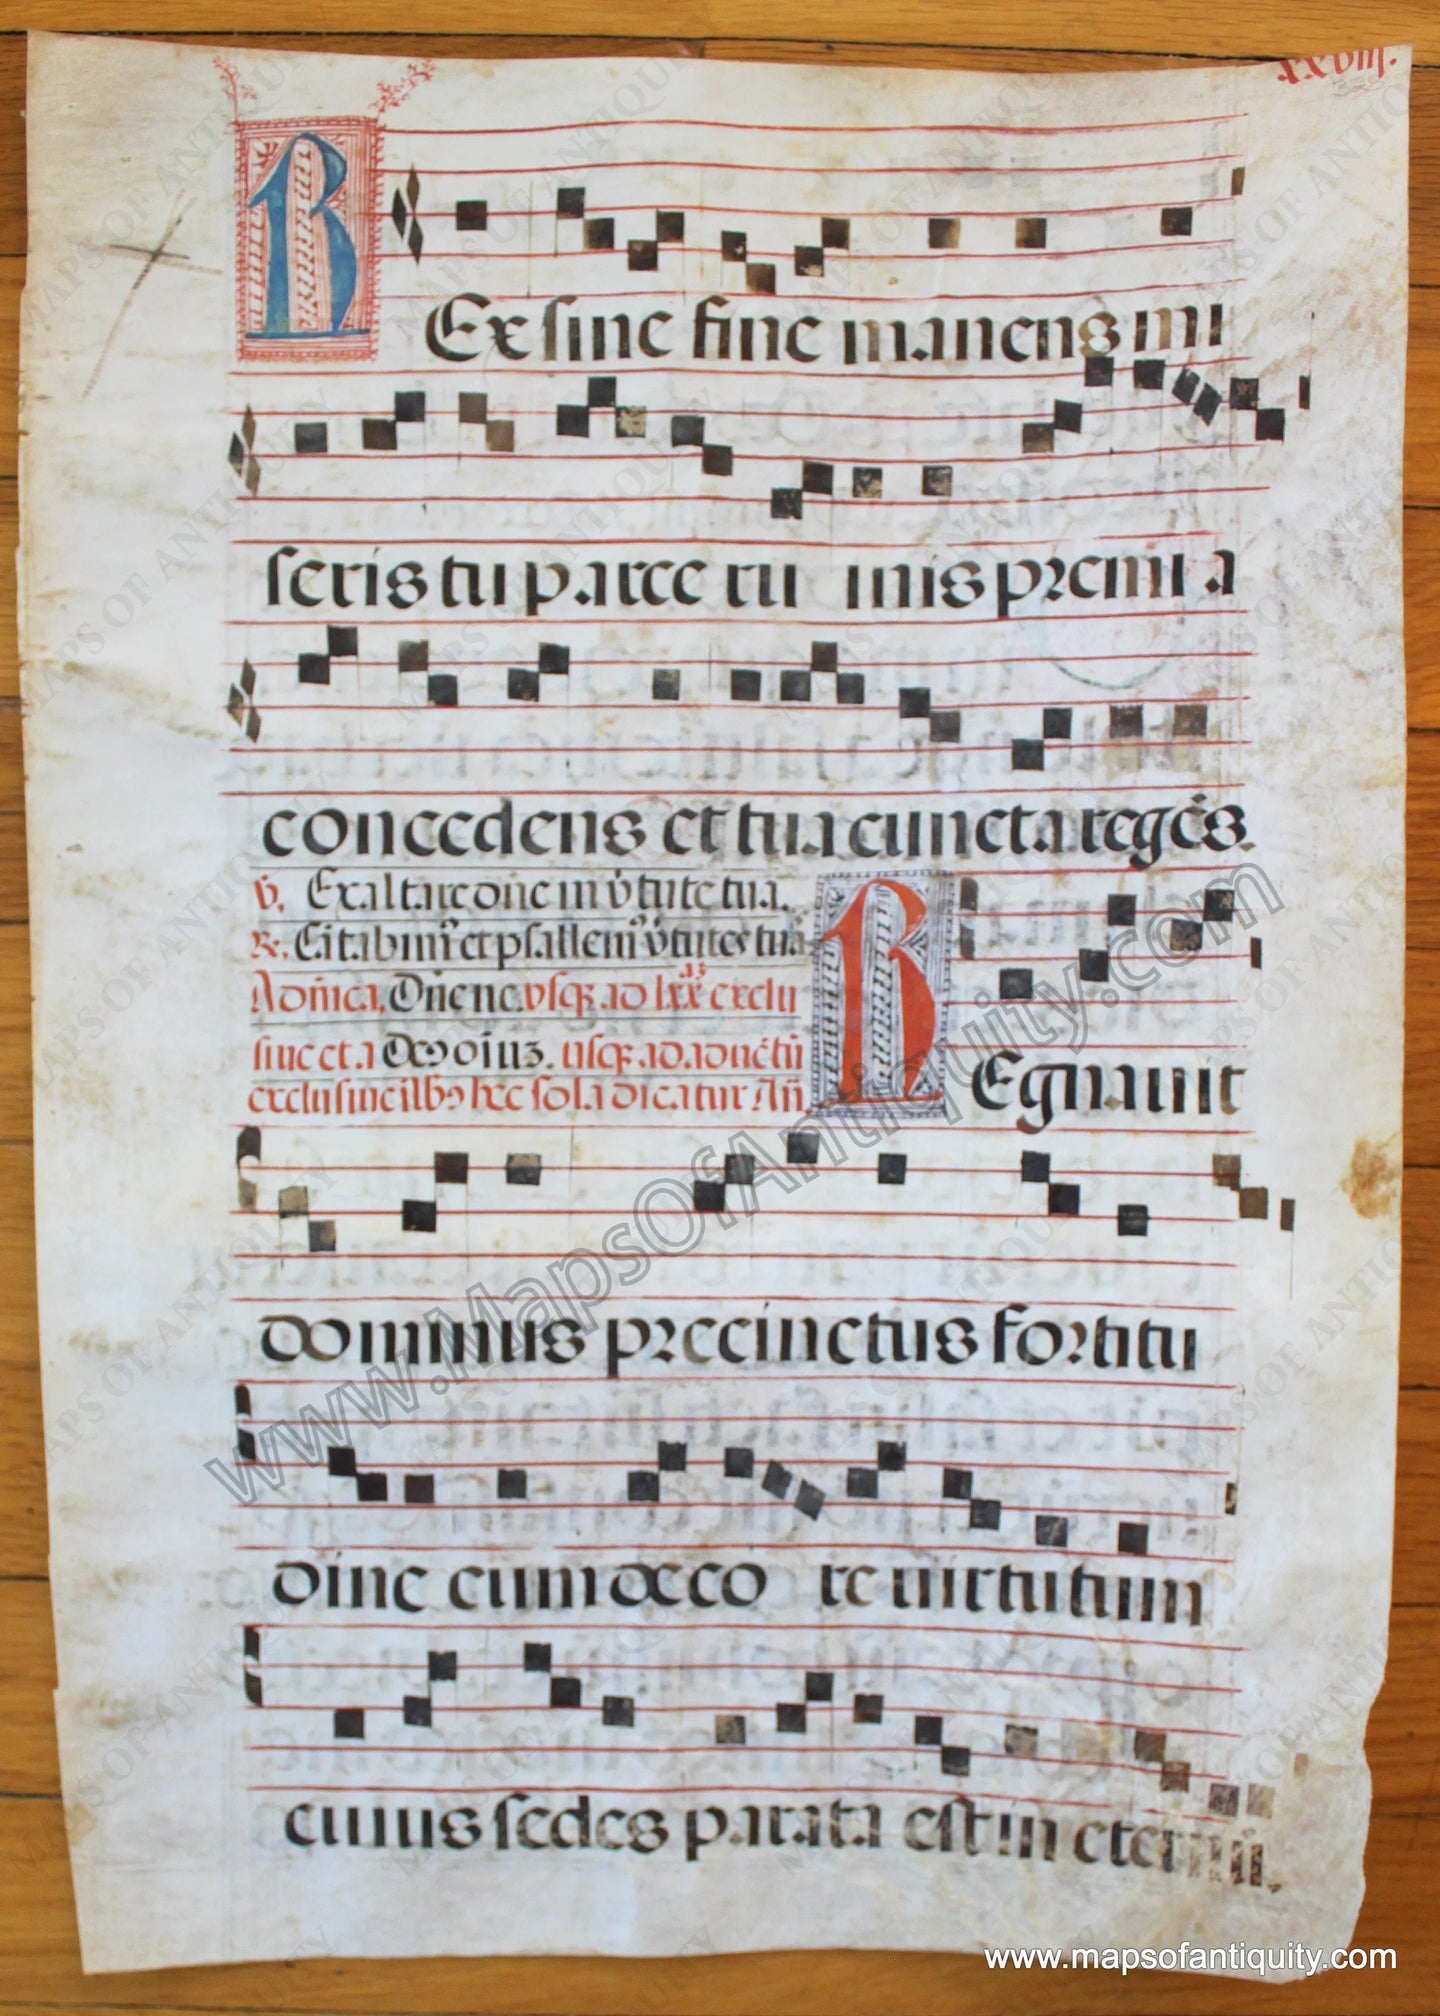 xxviij.
REx sine fine manens mi
seris tu parce rui inis premi a
concedens et tua cuncta regẽs.
V̓. Exaltare dñe in v̓tute tua.
R̓. Cãtabim᷒ et psallem᷒ v̓tutes tuas
A dñica, Dñe ne. usq; ad lxx exclu
sive et a Deo diuz. usq; ad aduẽtũ
exclusive ilb᷒ hec sola dicatur Añ.
REgnavit
dominus precinctus fortitu
dine cum deco re uirtutum
cuius sedes parata est in eternũ.
www.MapsOfAntiquity.com
www.mapsofantiquity.com